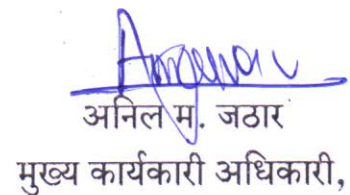 अनिल म. जठार
मुख्य कार्यकारी अधिकारी,